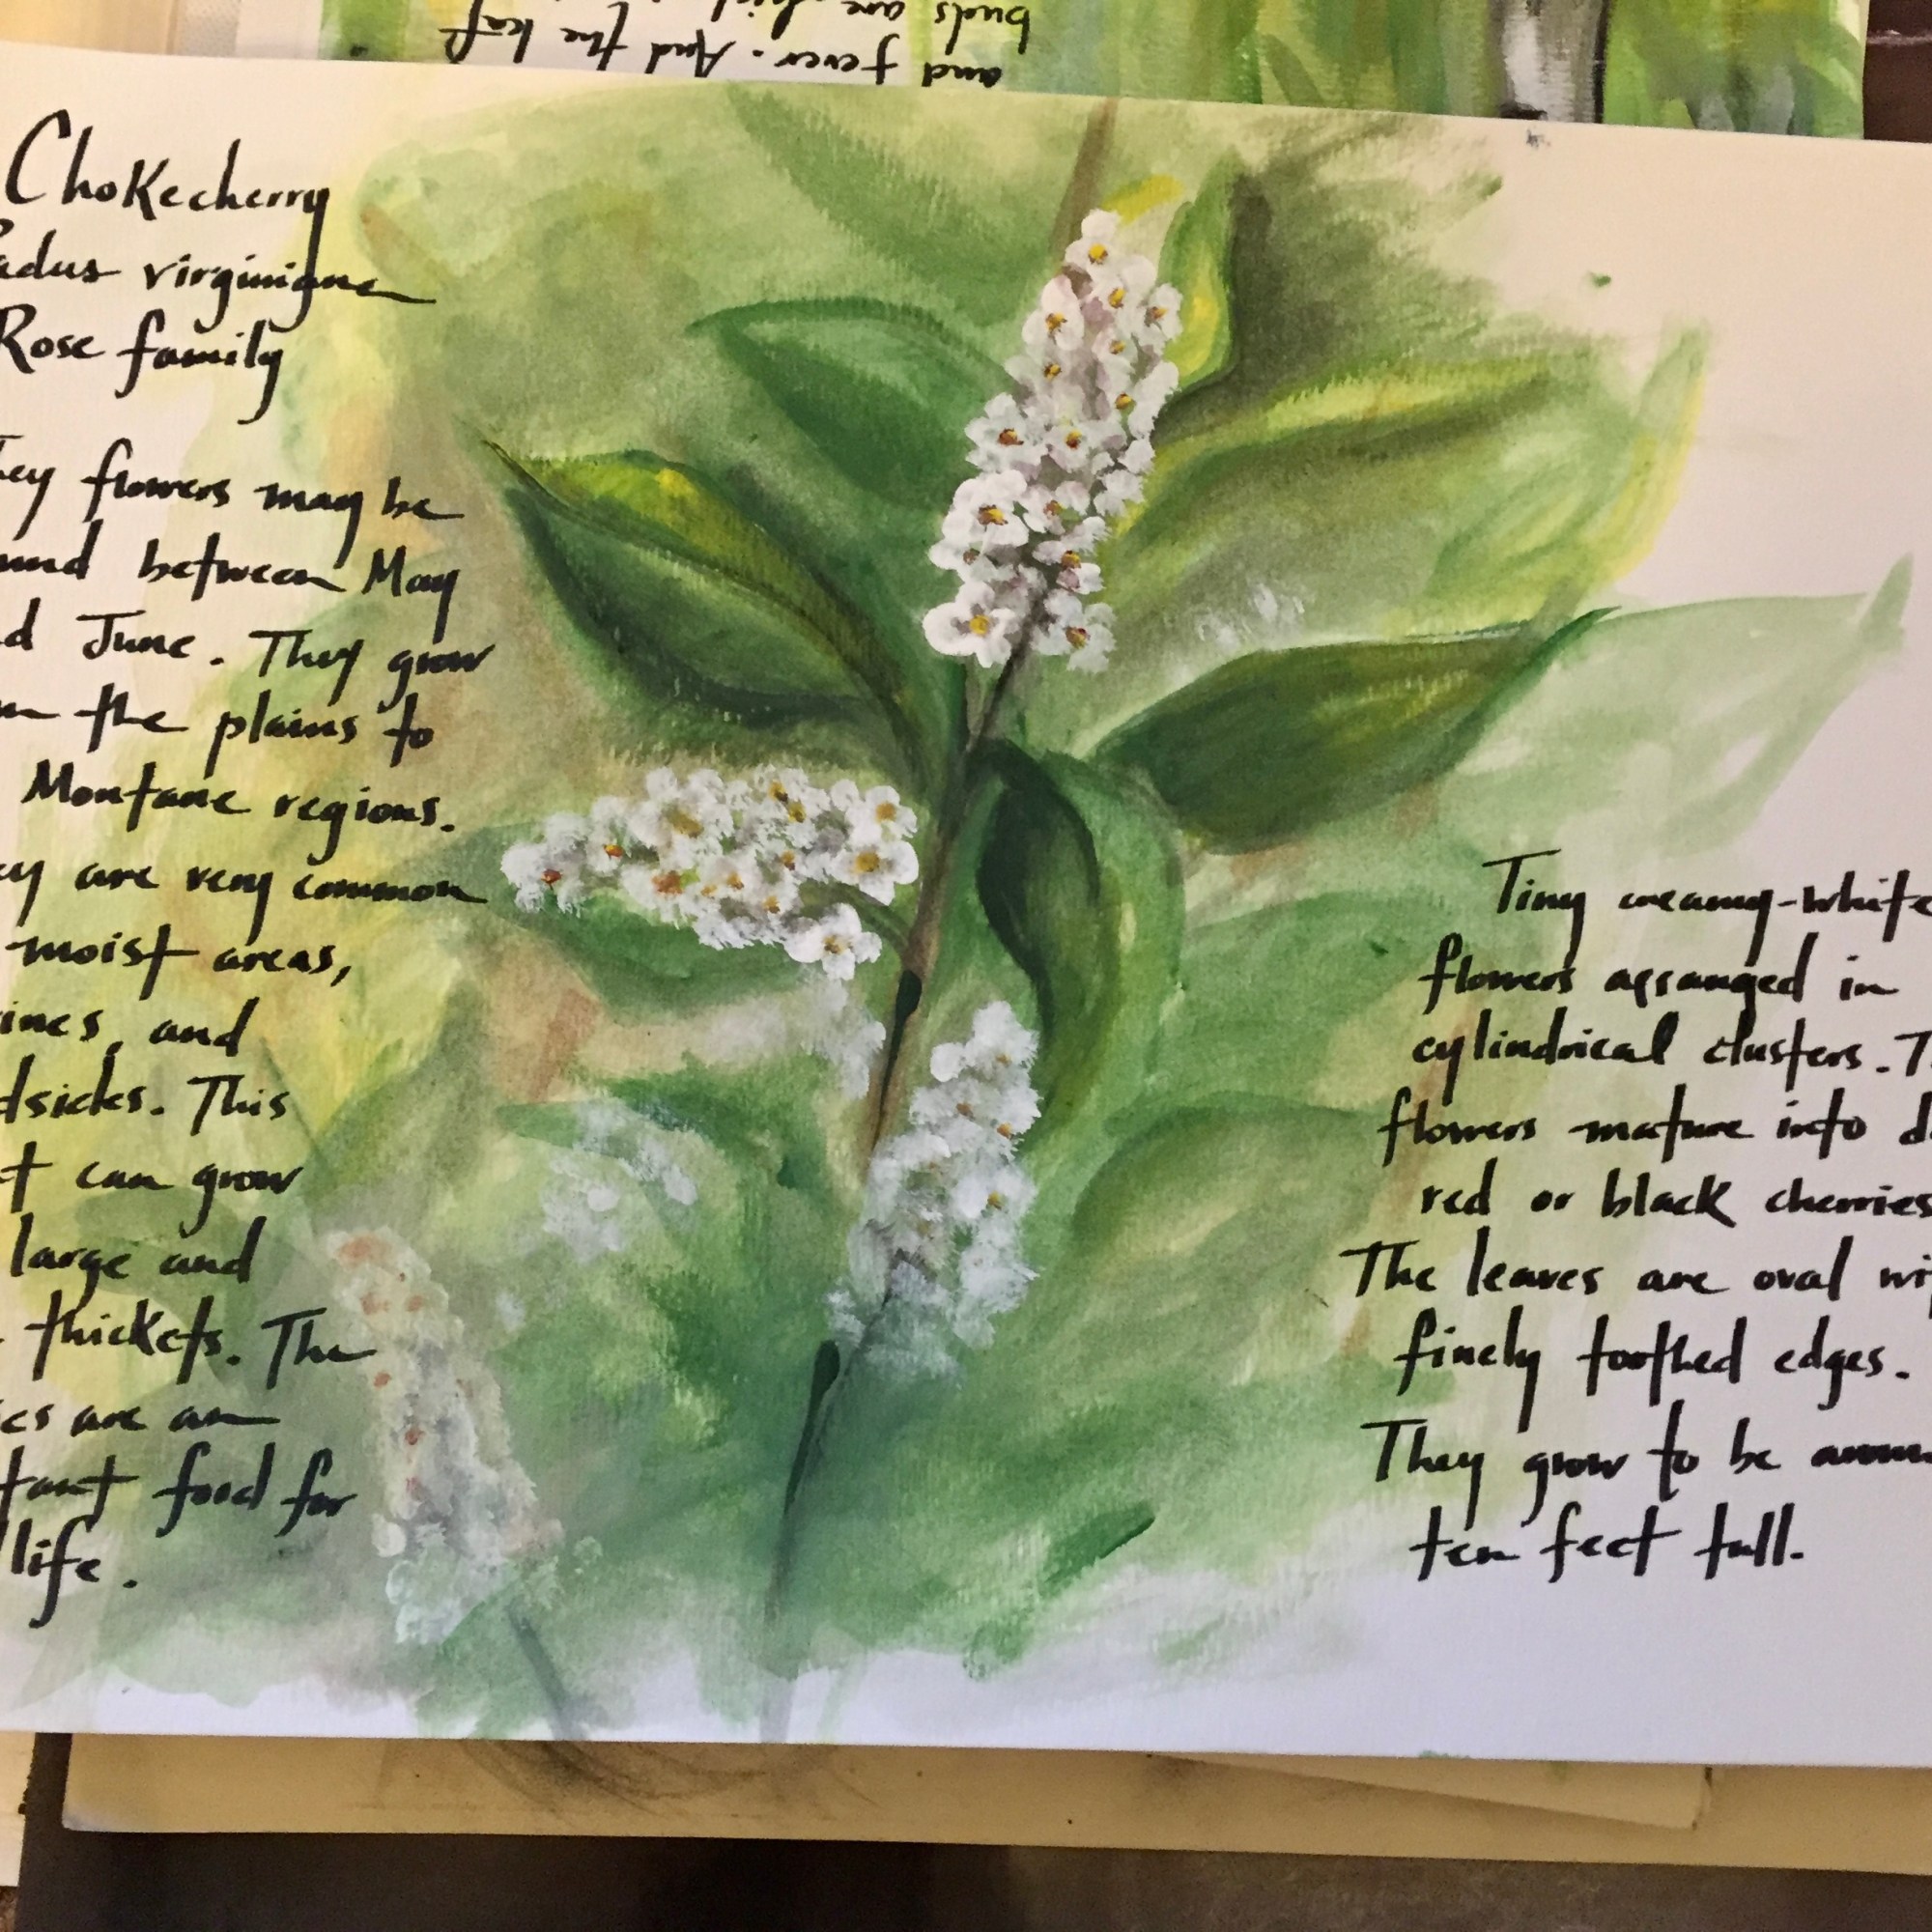 and fever. And the leaf
buds are
Chokecherry
adus virginiana
Rose family
ey flowers may be
und between May
d June. They grow
m the plains to
Montane regions.
ey are very common
moist areas,
ines, and
dsides. This
t can grow
large and
thickets. The
es are an
tant food for
life.
Tiny creamy-white
flowers arranged in
cylindrical clusters. T
flowers mature into d
red or black cherries
The leaves are oval wi
finely toothed edges.
They grow to be aroun
ten feet tall.